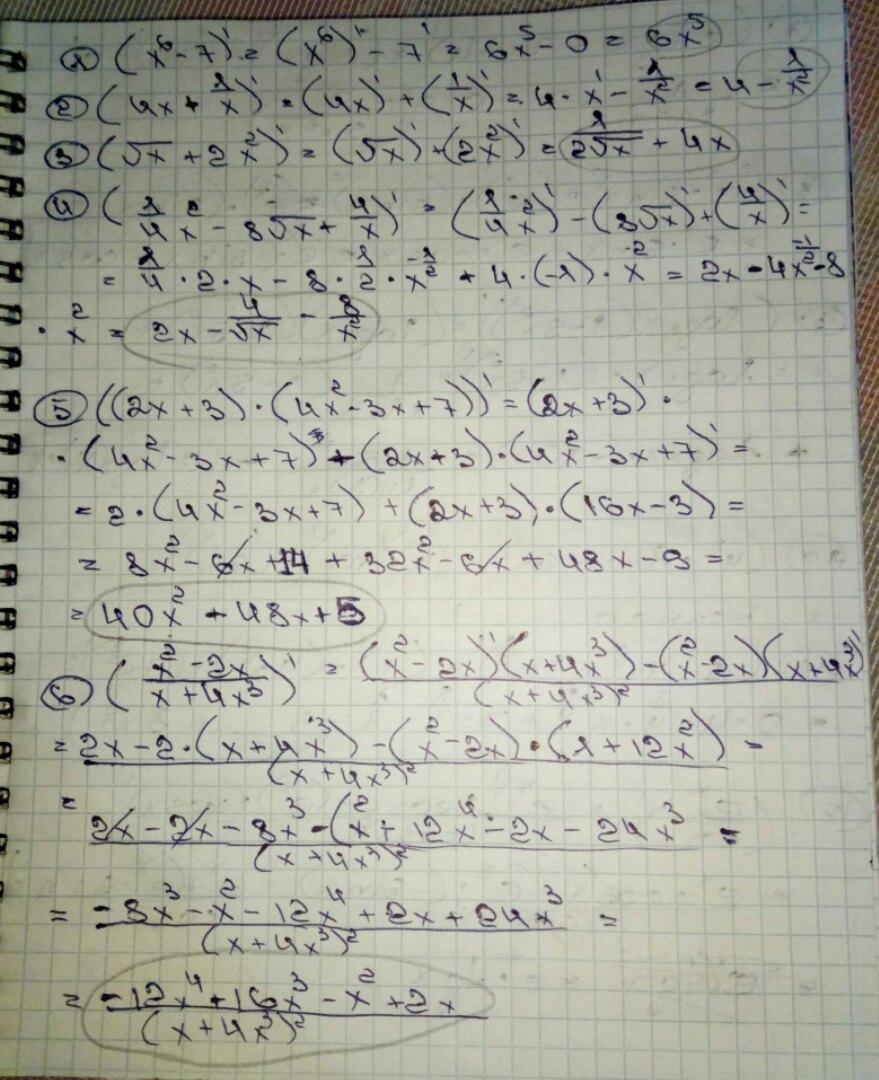 1) (x⁶ - 7)' = (x⁶)' - 7' = 6x⁵ - 0 = 6x⁵
2) (4x + 1/x)' = (4x)' + (1/x)' = 4 · x' - 1/x² = 4 - 1/x²
3) (√x + 2x²)' = (√x)' + (2x²)' = 1/(2√x) + 4x
4) (1/4 x² - 8√x + 4/x)' = (1/4 x²)' - (8√x)' + (4/x)' =
= 1/4 · 2 · x - 8 · 1/2 · x^(-1/2) + 4 · (-1) · x⁻² = 2x - 4x^(-1/2) - 8
· x² = 2x - 4/√x - 8/x²
5) ((2x + 3) · (4x² - 3x + 7))' = (2x + 3)' ·
· (4x² - 3x + 7) + (2x + 3) · (4x² - 3x + 7)' =
= 2 · (4x² - 3x + 7) + (2x + 3) · (16x - 3) =
= 8x² - 6x + 14 + 32x² - 6x + 48x - 9 =
= 40x² + 48x + 5
6) ((x² - 2x)/(x + 4x³))' = ((x² - 2x)'(x + 4x³) - (x² - 2x)(x + 4x³)')/(x + 4x³)²
= (2x - 2 · (x + 4x³) - (x² - 2x) · (1 + 12x²))/(x + 4x³)² =
= (2x - 2x - 8x³ - (x² + 12x⁴ - 2x - 24x³)/(x + 4x³)² =
= (-8x³ - x² - 12x⁴ + 2x + 24x³)/(x + 4x³)² =
= (-12x⁴ + 16x³ - x² + 2x)/(x + 4x³)²